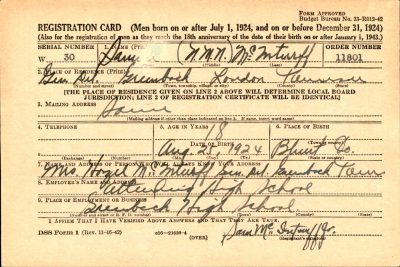 FORM APPROVED
Budget Bureau No. 33-R012-42
REGISTRATION CARD (Men born on or after July 1, 1924, and on or before December 31, 1924)
(Also for the registration of men as they reach the 18th anniversary of the date of their birth on or after January 1, 1943.)
SERIAL NUMBER 1. NAME (Print) ORDER NUMBER
W 30 Sam (N.M.N.) McInturff 11801
(First) (Middle) (Last)
2. PLACE OF RESIDENCE (Print)
Gen. Del. Greenback Loudon Tennessee
(Town, township, village or city) (County) (State)
[THE PLACE OF RESIDENCE GIVEN ON LINE 2 ABOVE WILL DETERMINE LOCAL BOARD
JURISDICTION; LINE 2 OF REGISTRATION CERTIFICATE WILL BE IDENTICAL]
3. MAILING ADDRESS
Same
[Mailing address if other than place indicated on line 2. If same, insert word same]
4. TELEPHONE 5. AGE IN YEARS 6. PLACE OF BIRTH
18
DATE OF BIRTH
Aug. 21 1924 Blount Co.
7. NAME AND ADDRESS OF PERSON WHO WILL ALWAYS KNOW YOUR ADDRESS
Mrs. McInturff Gen. Del. Greenback Tenn
8. EMPLOYER'S NAME AND ADDRESS
Attending High School
9. PLACE OF EMPLOYMENT OR BUSINESS
Greenback High School.
I AFFIRM THAT I HAVE VERIFIED ABOVE ANSWERS AND THAT THEY ARE TRUE.
DSS Form 1 (Rev. 11-16-42) (OVER)
Sam McInturff Jr.
(Registrant's signature)